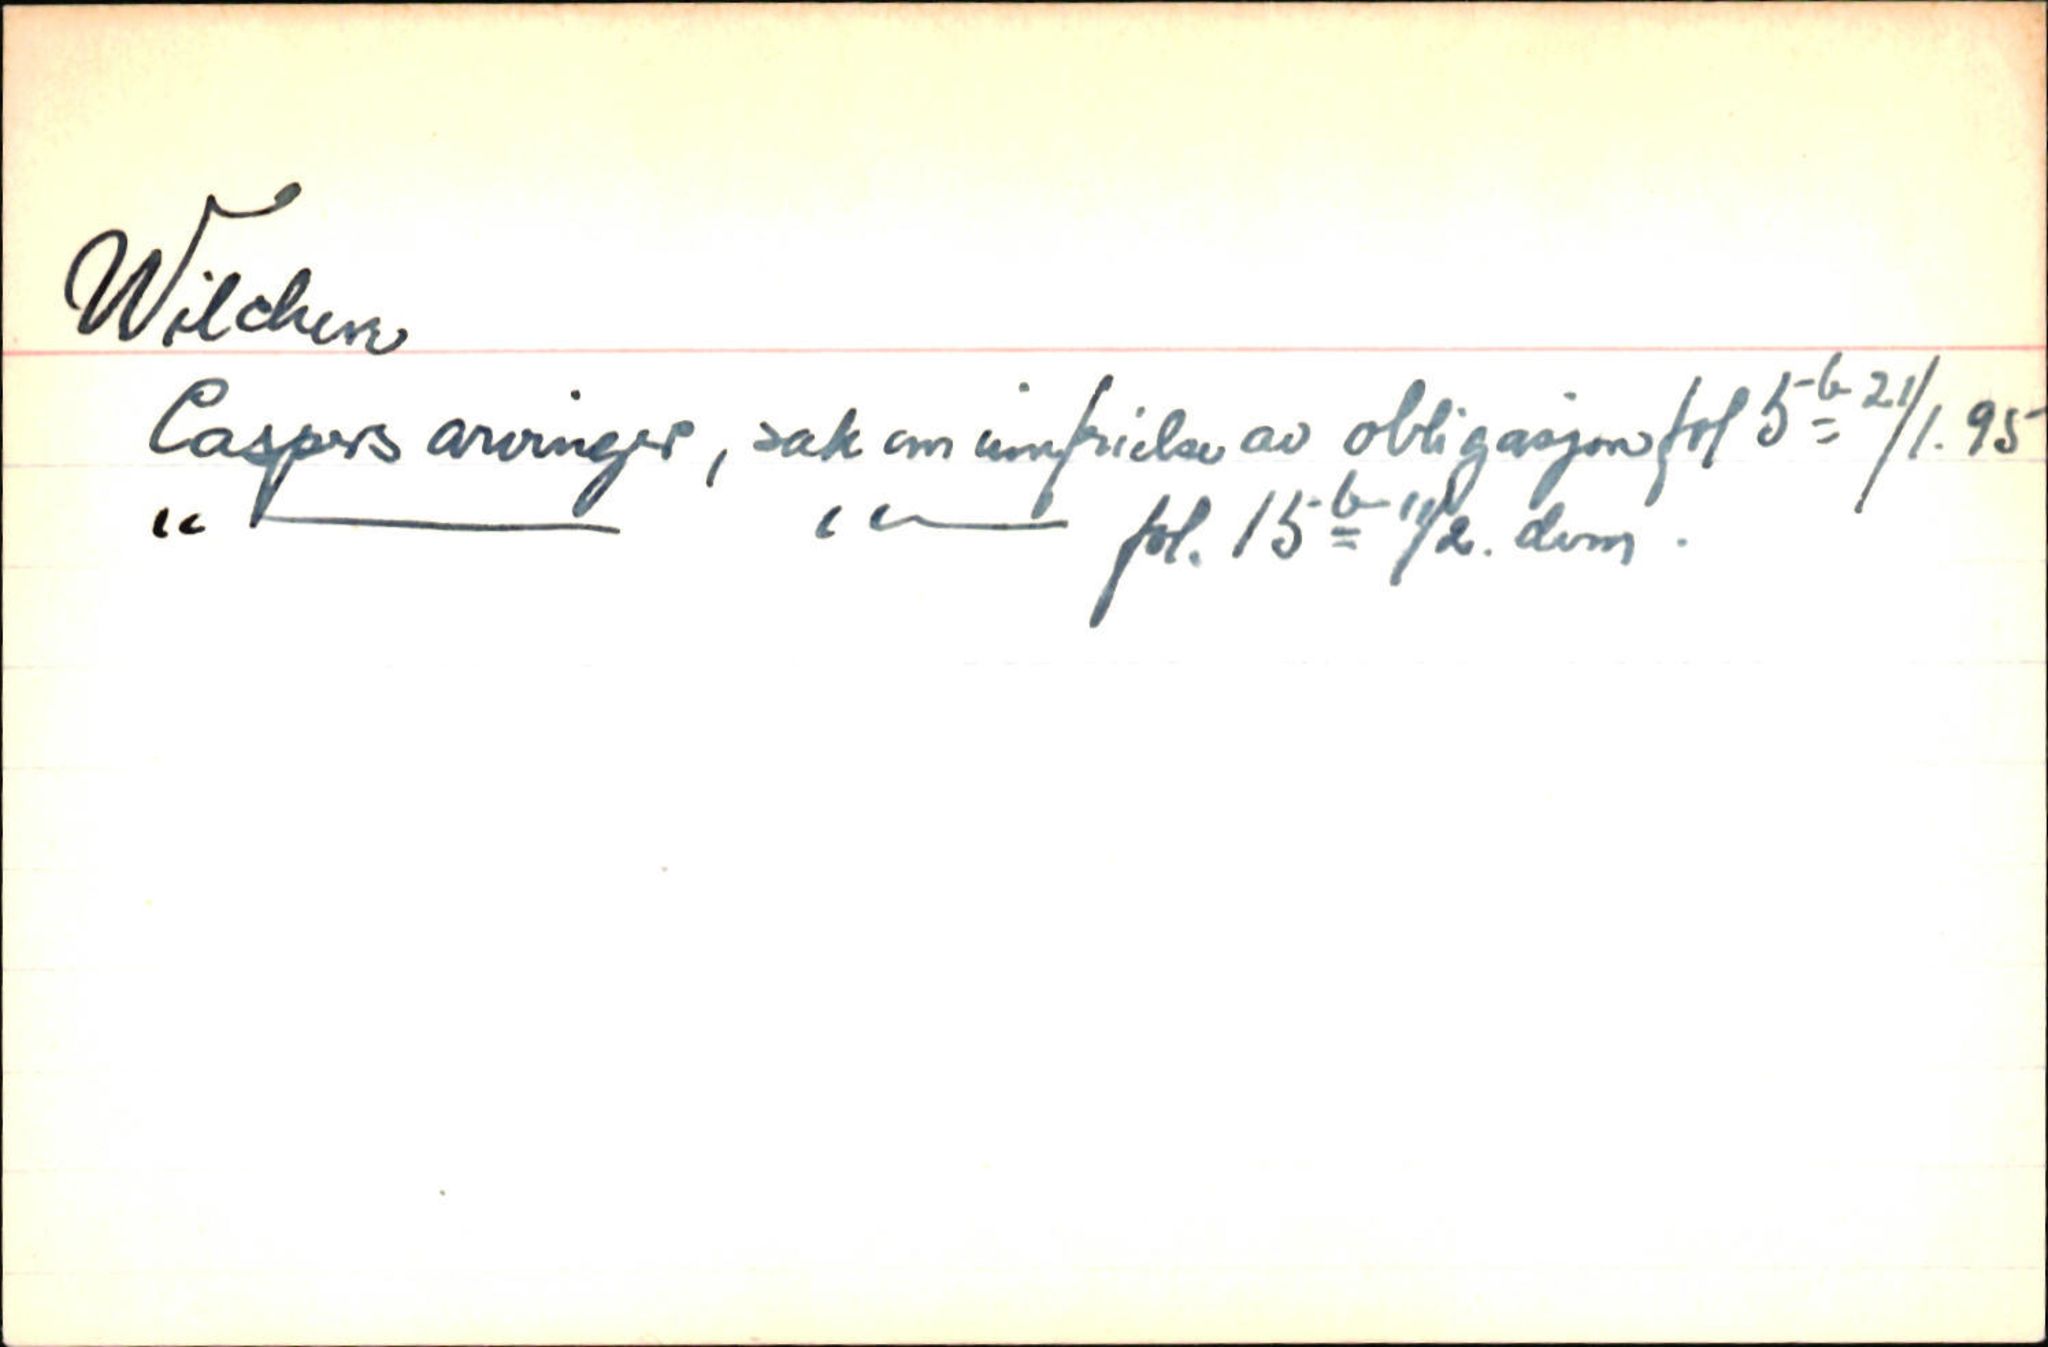 Wilchen
Caspers arvinger, sak om innfrielse av obligasjon fol 5b 21/1. 95
" — " — fol. 15b 11/2. dom.